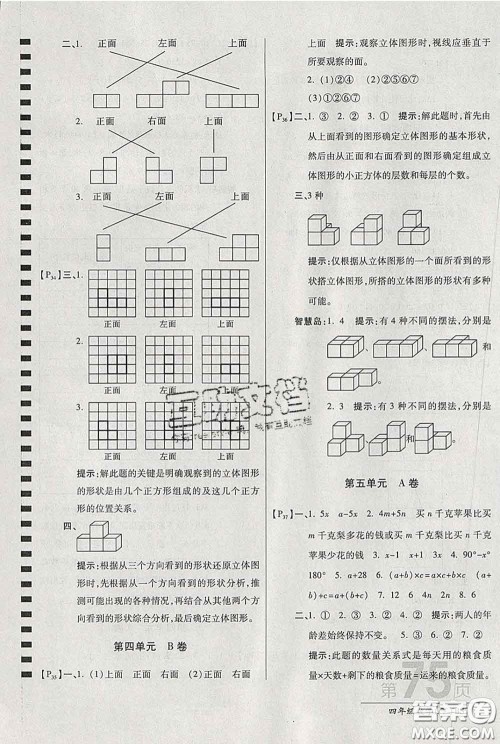 二、1. 正面 左面 上面
2. 正面 右面 上面
3. 正面 左面 上面
【P34】三、1.
正面 左面 上面
2.
正面 左面 上面
3.
正面 左面 上面
提示:解此题的关键是明确观察到的立体图形
的形状是由几个正方形组成的及这几个正方
形的位置关系。
四、
提示:根据从三个方向看到的形状还原立体图
形时,先根据从一个方向看到的形状分析,推
测可能出现的各种情况,再结合从其他方向看
到的形状综合分析,最后确定立体图形。
第四单元 B卷
【P35】一、1. (1)正面 右面 (2)正面 右面
上面 提示:观察立体图形时,视线应垂直于
所要观察的面。
2. (1)②④ (2)②⑤⑥⑦
(3)①②⑤⑥⑦
【P36】二、1. ③ ② 2. ① ③ 提示:解此题时,首先由
从上面看到的图形确定立体图形的基本形状,
然后由从正面和右面看到的图形确定组成立
体图形的小正方体的层数和每层的个数。
三、3种
提示:仅根据从立体图形的一个面所看到的形
状搭立体图形,所搭的立体图形的形状有多种
可能。
智慧岛:1. 4 提示:有4种不同的摆法,分别是
2. 3 提示:有3种不同的摆法,分别是
第五单元 A卷
【P37】一、1. 5x a-5x 2. 4m+5n 买m千克苹果比买n
千克梨多花的钱或买n千克梨比买m千克
苹果少花的钱 3. x-1 x+1 3x 4. 90°-x°
180° 5. a+28 6. (a+b)×c=a×c+b×c
(a+b)÷c=a÷c+b÷c 7. 4n 8. 12 2n 6
二、1. ③ 2. ① 3. ② 4. ② 提示:两人的
年龄差始终保持不变。 5. ③ 6. ②
提示:此题的数量关系式是每天用的粮食质
量+剩下的粮食质量=运来的粮食质量。
第75页
四年级
答案圈
MXQE.COM